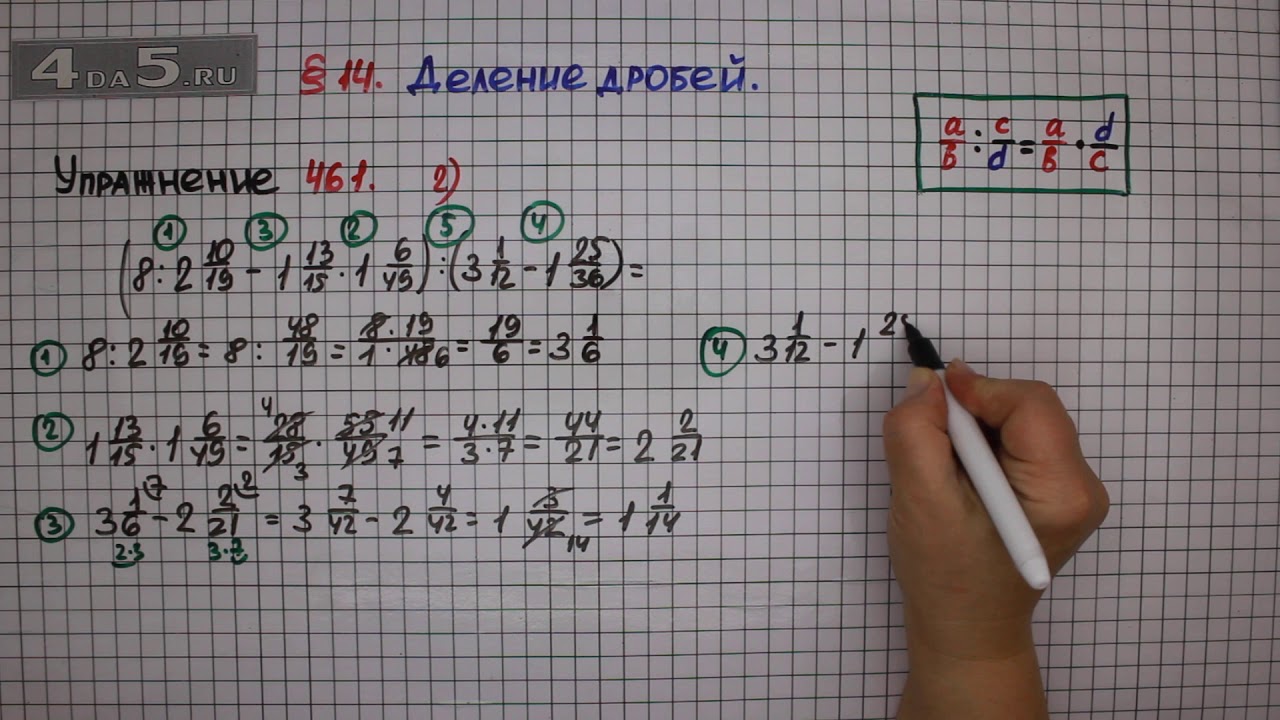 4DA5.RU
§ 14. Деление дробей.
a/b : c/d = a/b · d/c
Упражнение 461. 2)
① ③ ② ⑤ ④
(8 : 2 10/19 - 1 13/15 · 1 6/49) : (3 1/12 - 1 25/36) =
① 8 : 2 10/19 = 8 : 48/19 = 8·19/1·48 6 = 19/6 = 3 1/6
② 1 13/15 · 1 6/49 = 4 28/15 3 · 55/49 11 7 = 4·11/3·7 = 44/21 = 2 2/21
③ 3 1/6 7 - 2 2/21 2 = 3 7/42 - 2 4/42 = 1 3/42 14 = 1 1/14
2·3 3·7
④ 3 1/12 - 1 2